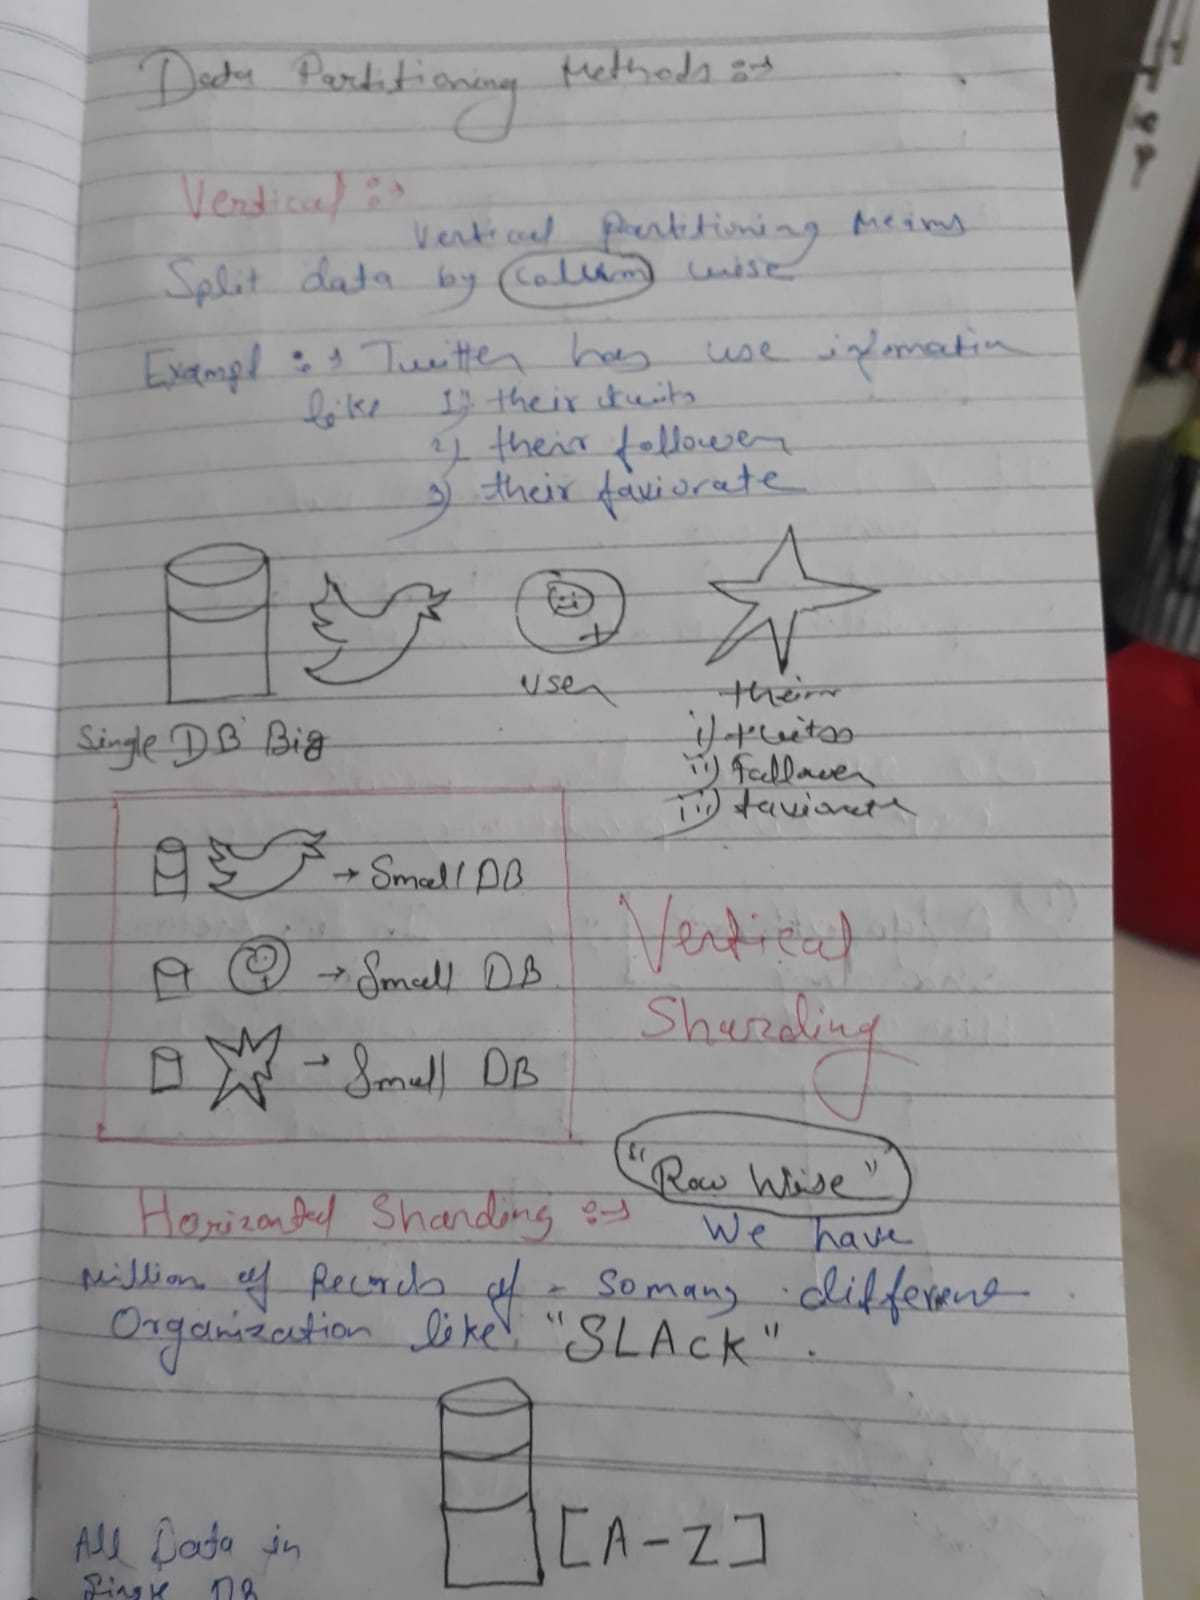 Data Partitioning Methods :→
Vertical :→
Vertical Partitioning Means
Split data by Collum wise
Exampl :→ Twitter has use infomation
like 1) their tuits
2) their follower
3) their faviorate
user
their
i) tuites
ii) Follower
iii) faviorate
Single DB Big
→ Small DB
→ Small DB
→ Small DB
Vertical
Sharding
"Row Wise"
Horizontal Sharding :→
We have
Million of Records of - so many different
Organization like "SLACK".
[A-Z]
All Data in
Single DB